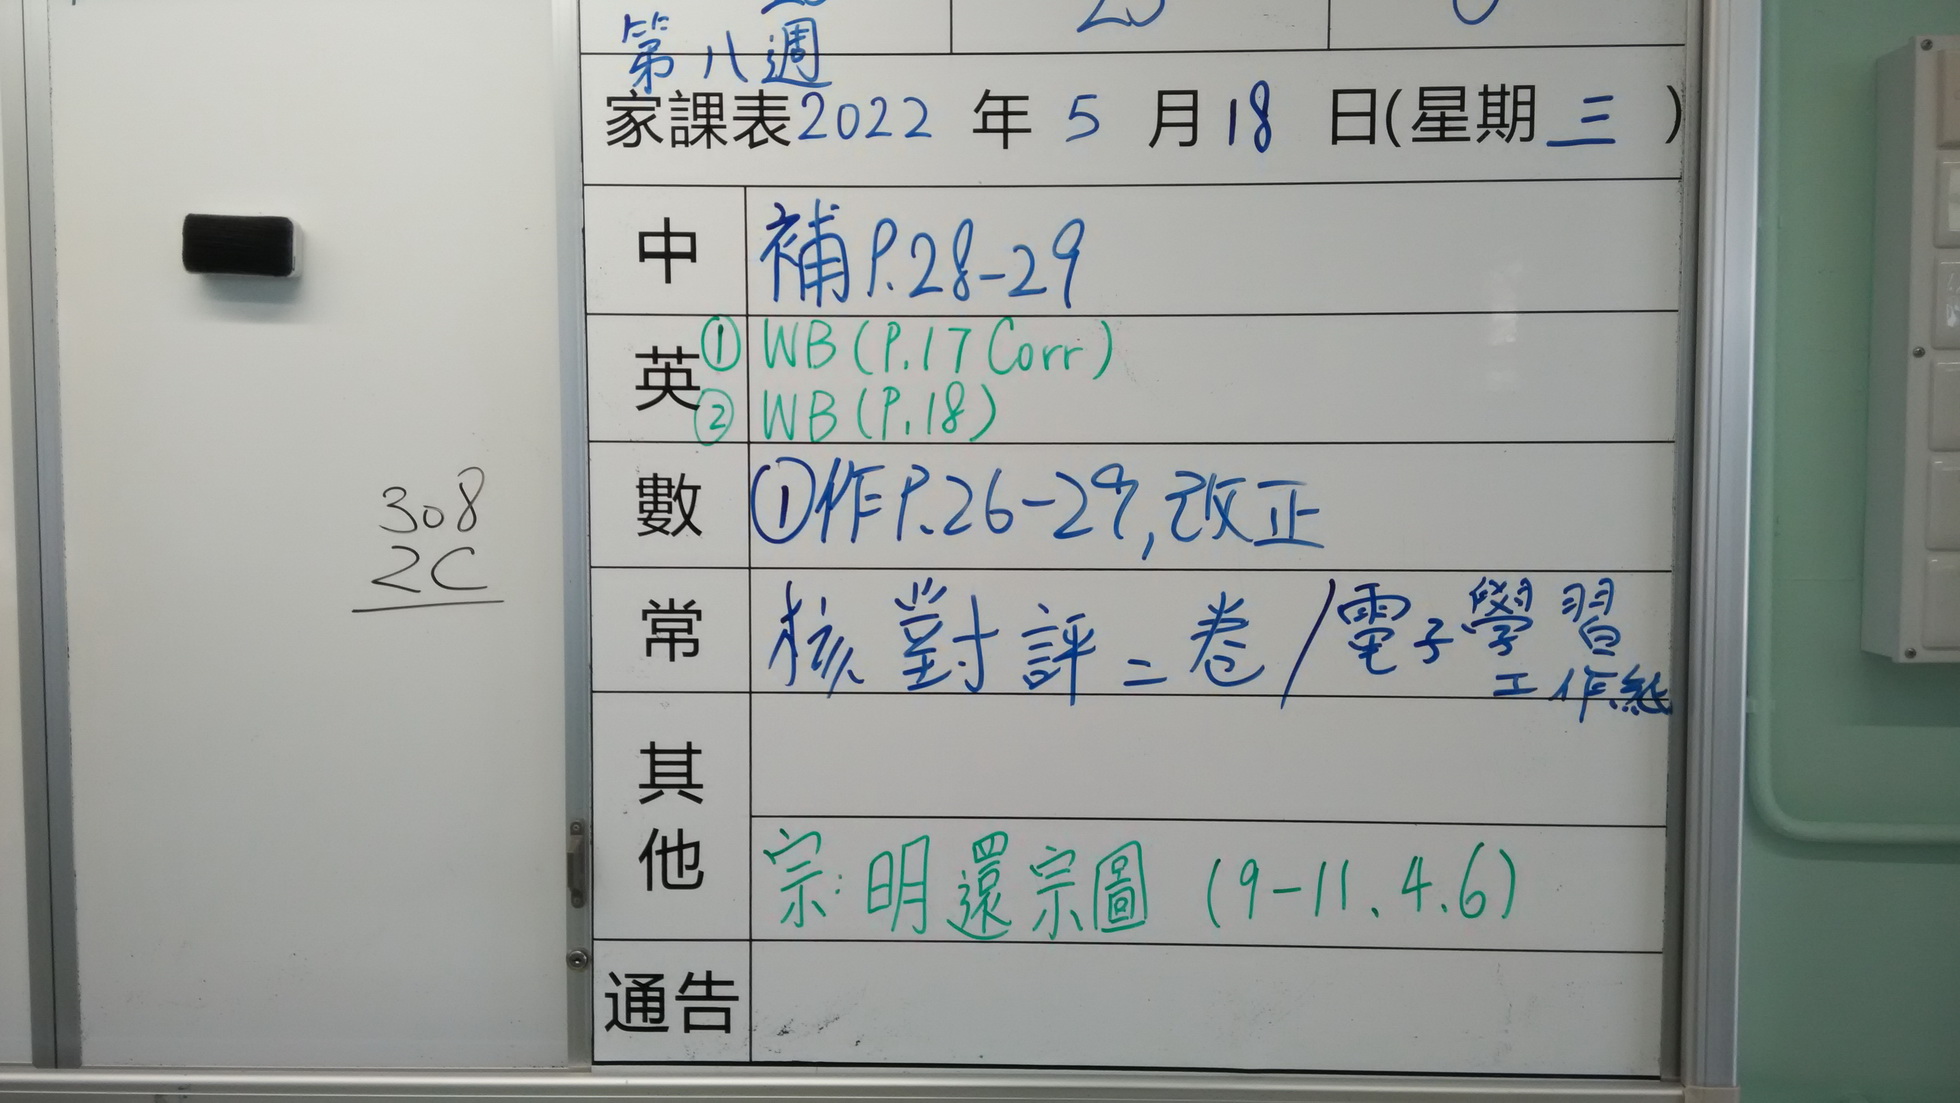 第八週
家課表2022 年 5 月 18 日(星期三)
中 補P.28-29
英 ① WB (P.17 Corr)
② WB (P.18)
數 ①作P.26-29,改正
常 核對評二卷/電子學習
工作紙
其他
宗:明還宗圖 (9-11、4.6)
通告
308
2C